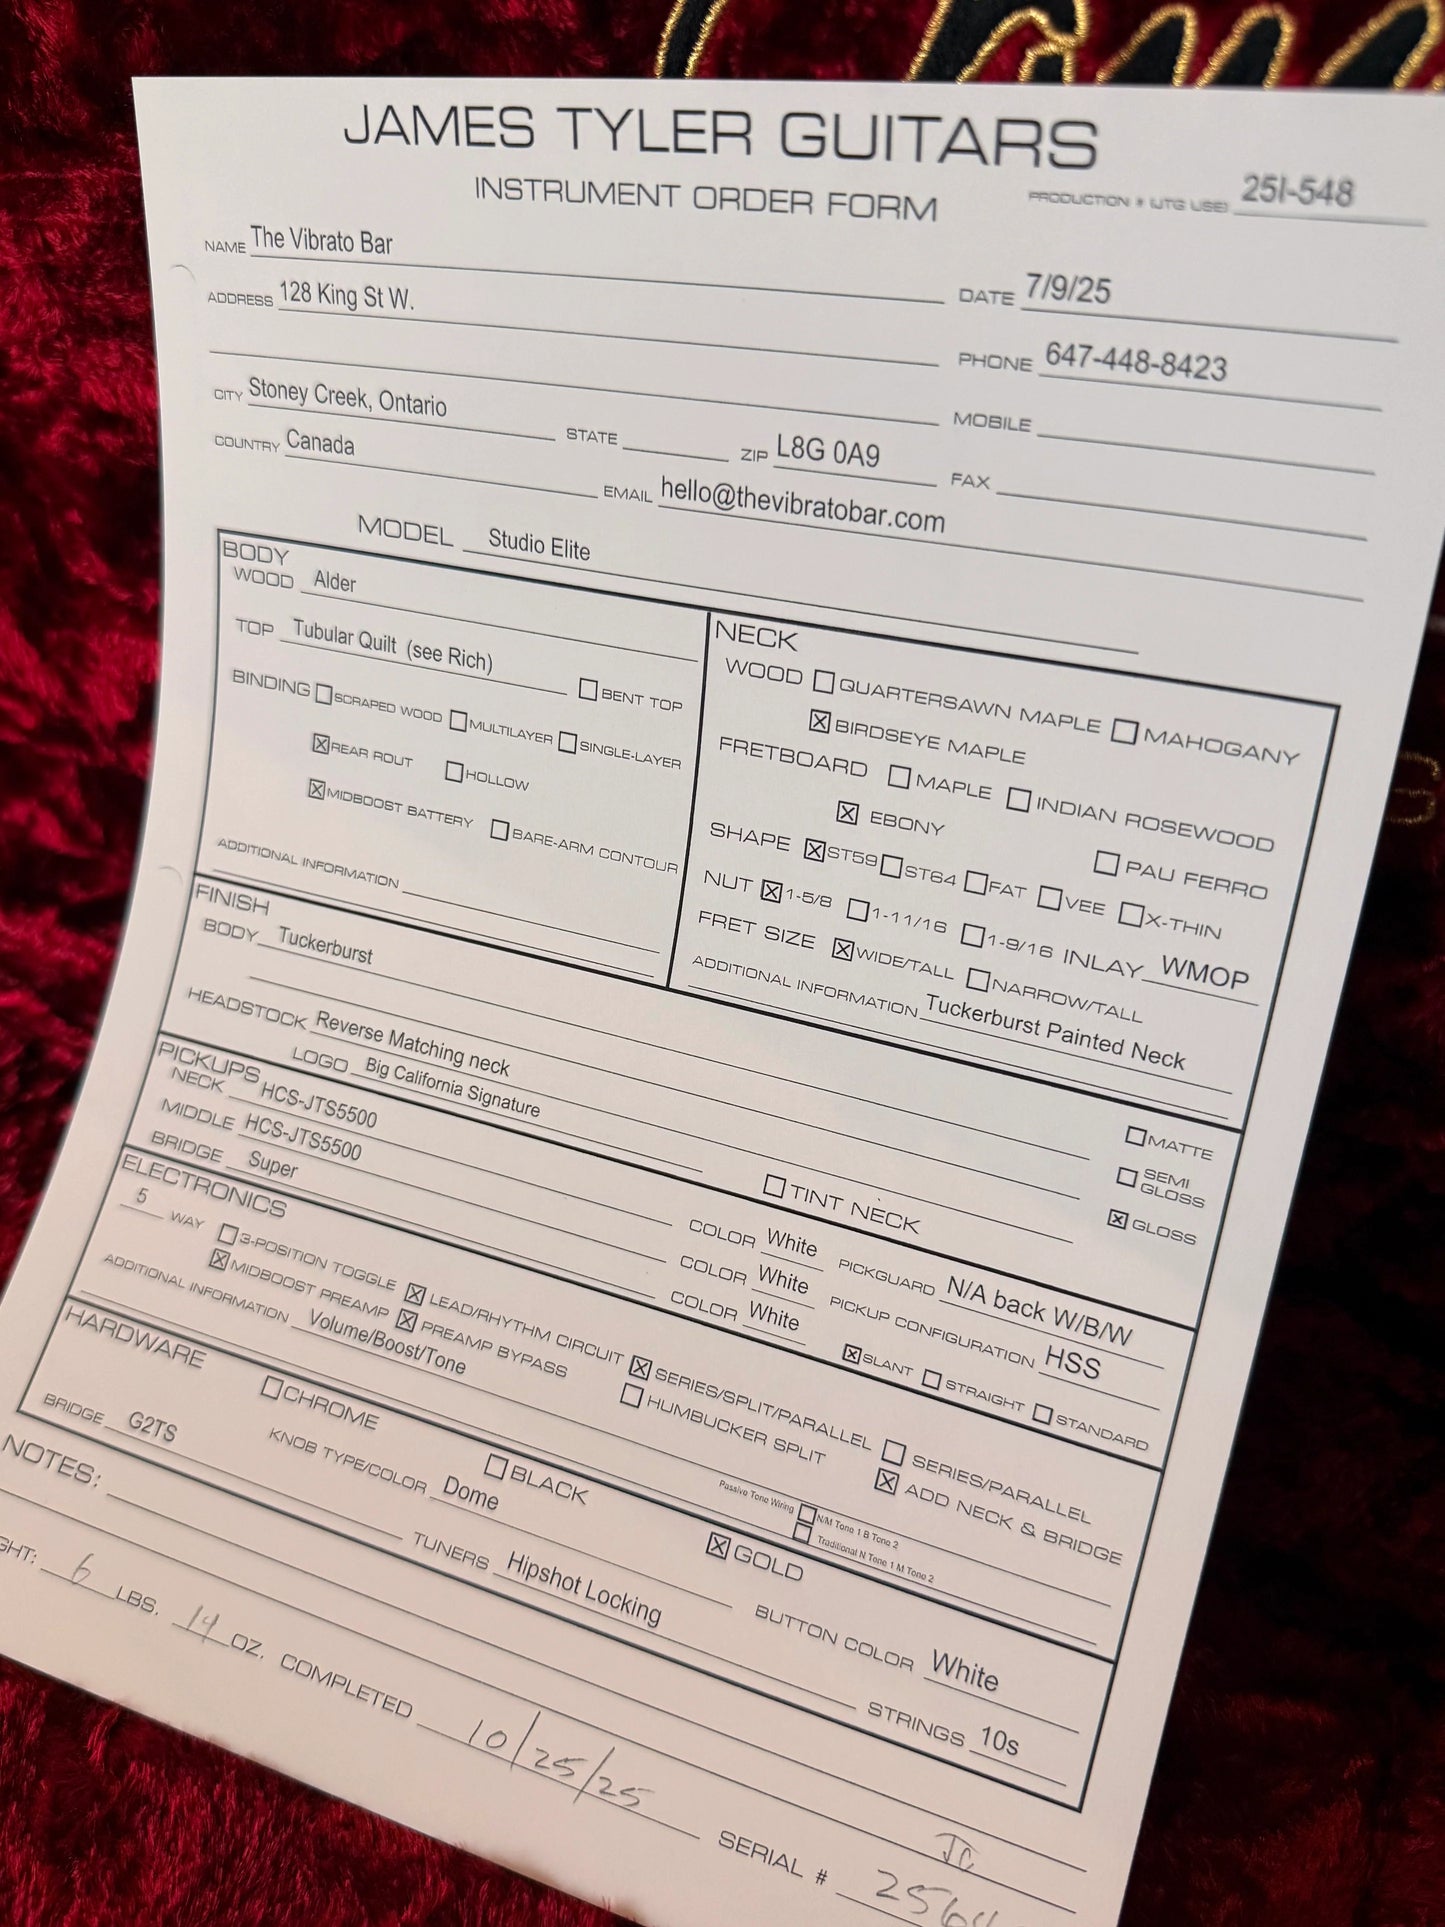 JAMES TYLER GUITARS
INSTRUMENT ORDER FORM
PRODUCTION # (JTG USE) 25I-548
NAME The Vibrato Bar
DATE 7/9/25
ADDRESS 128 King St W.
PHONE 647-448-8423
MOBILE
CITY Stoney Creek, Ontario STATE ZIP L8G 0A9 FAX
COUNTRY Canada EMAIL hello@thevibratobar.com
MODEL Studio Elite
BODY
WOOD Alder
TOP Tubular Quilt (see Rich) ☐ BENT TOP
BINDING ☐ SCRAPED WOOD ☐ MULTILAYER ☐ SINGLE-LAYER
☒ REAR ROUT ☐ HOLLOW
☒ MIDBOOST BATTERY ☐ BARE-ARM CONTOUR
ADDITIONAL INFORMATION
NECK
WOOD ☐ QUARTERSAWN MAPLE ☐ MAHOGANY
☒ BIRDSEYE MAPLE
FRETBOARD ☐ MAPLE ☐ INDIAN ROSEWOOD
☒ EBONY ☐ PAU FERRO
SHAPE ☒ ST59 ☐ ST64 ☐ FAT ☐ VEE ☐ X-THIN
NUT ☒ 1-5/8 ☐ 1-11/16 ☐ 1-9/16 INLAY WMOP
FRET SIZE ☒ WIDE/TALL ☐ NARROW/TALL
ADDITIONAL INFORMATION Tuckerburst Painted Neck
FINISH
BODY Tuckerburst
☐ MATTE
HEADSTOCK Reverse Matching neck
☐ SEMI GLOSS
LOGO Big California Signature ☐ TINT NECK ☒ GLOSS
PICKUPS
NECK HCS-JTS5500 COLOR White PICKGUARD N/A back W/B/W
MIDDLE HCS-JTS5500 COLOR White PICKUP CONFIGURATION HSS
BRIDGE Super COLOR White ☒ SLANT ☐ STRAIGHT ☐ STANDARD
ELECTRONICS
5 WAY ☐ 3-POSITION TOGGLE ☒ LEAD/RHYTHM CIRCUIT ☒ SERIES/SPLIT/PARALLEL ☐ SERIES/PARALLEL
☒ MIDBOOST PREAMP ☒ PREAMP BYPASS ☐ HUMBUCKER SPLIT ☒ ADD NECK & BRIDGE
ADDITIONAL INFORMATION Volume/Boost/Tone
Passive Tone Wiring ☐ N/M Tone 1 B Tone 2
☐ Traditional N Tone 1 M Tone 2
HARDWARE
☐ CHROME ☐ BLACK ☒ GOLD
BRIDGE G2TS KNOB TYPE/COLOR Dome BUTTON COLOR White
TUNERS Hipshot Locking STRINGS 10s
NOTES:
GHT: 6 LBS. 14 OZ. COMPLETED 10/25/25 SERIAL #